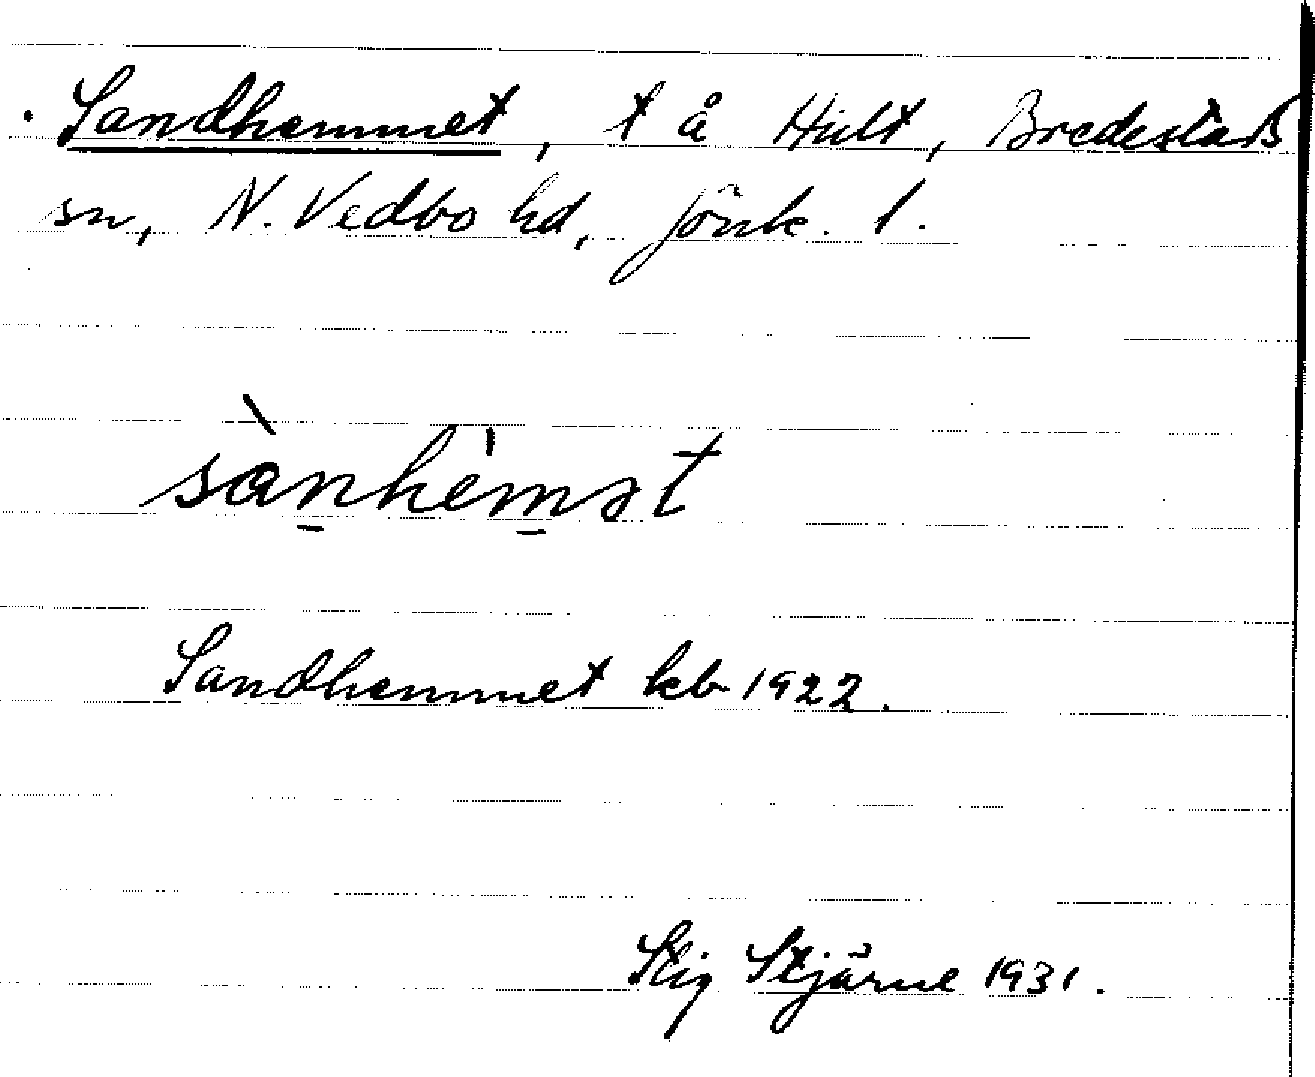 Sandhemmet, t å Hult, Bredestads
sn, N. Vedbo hd, Jönk. l.
sànhèmət
Sandhemmet kb 1922.
Stig Stjärne 1931.